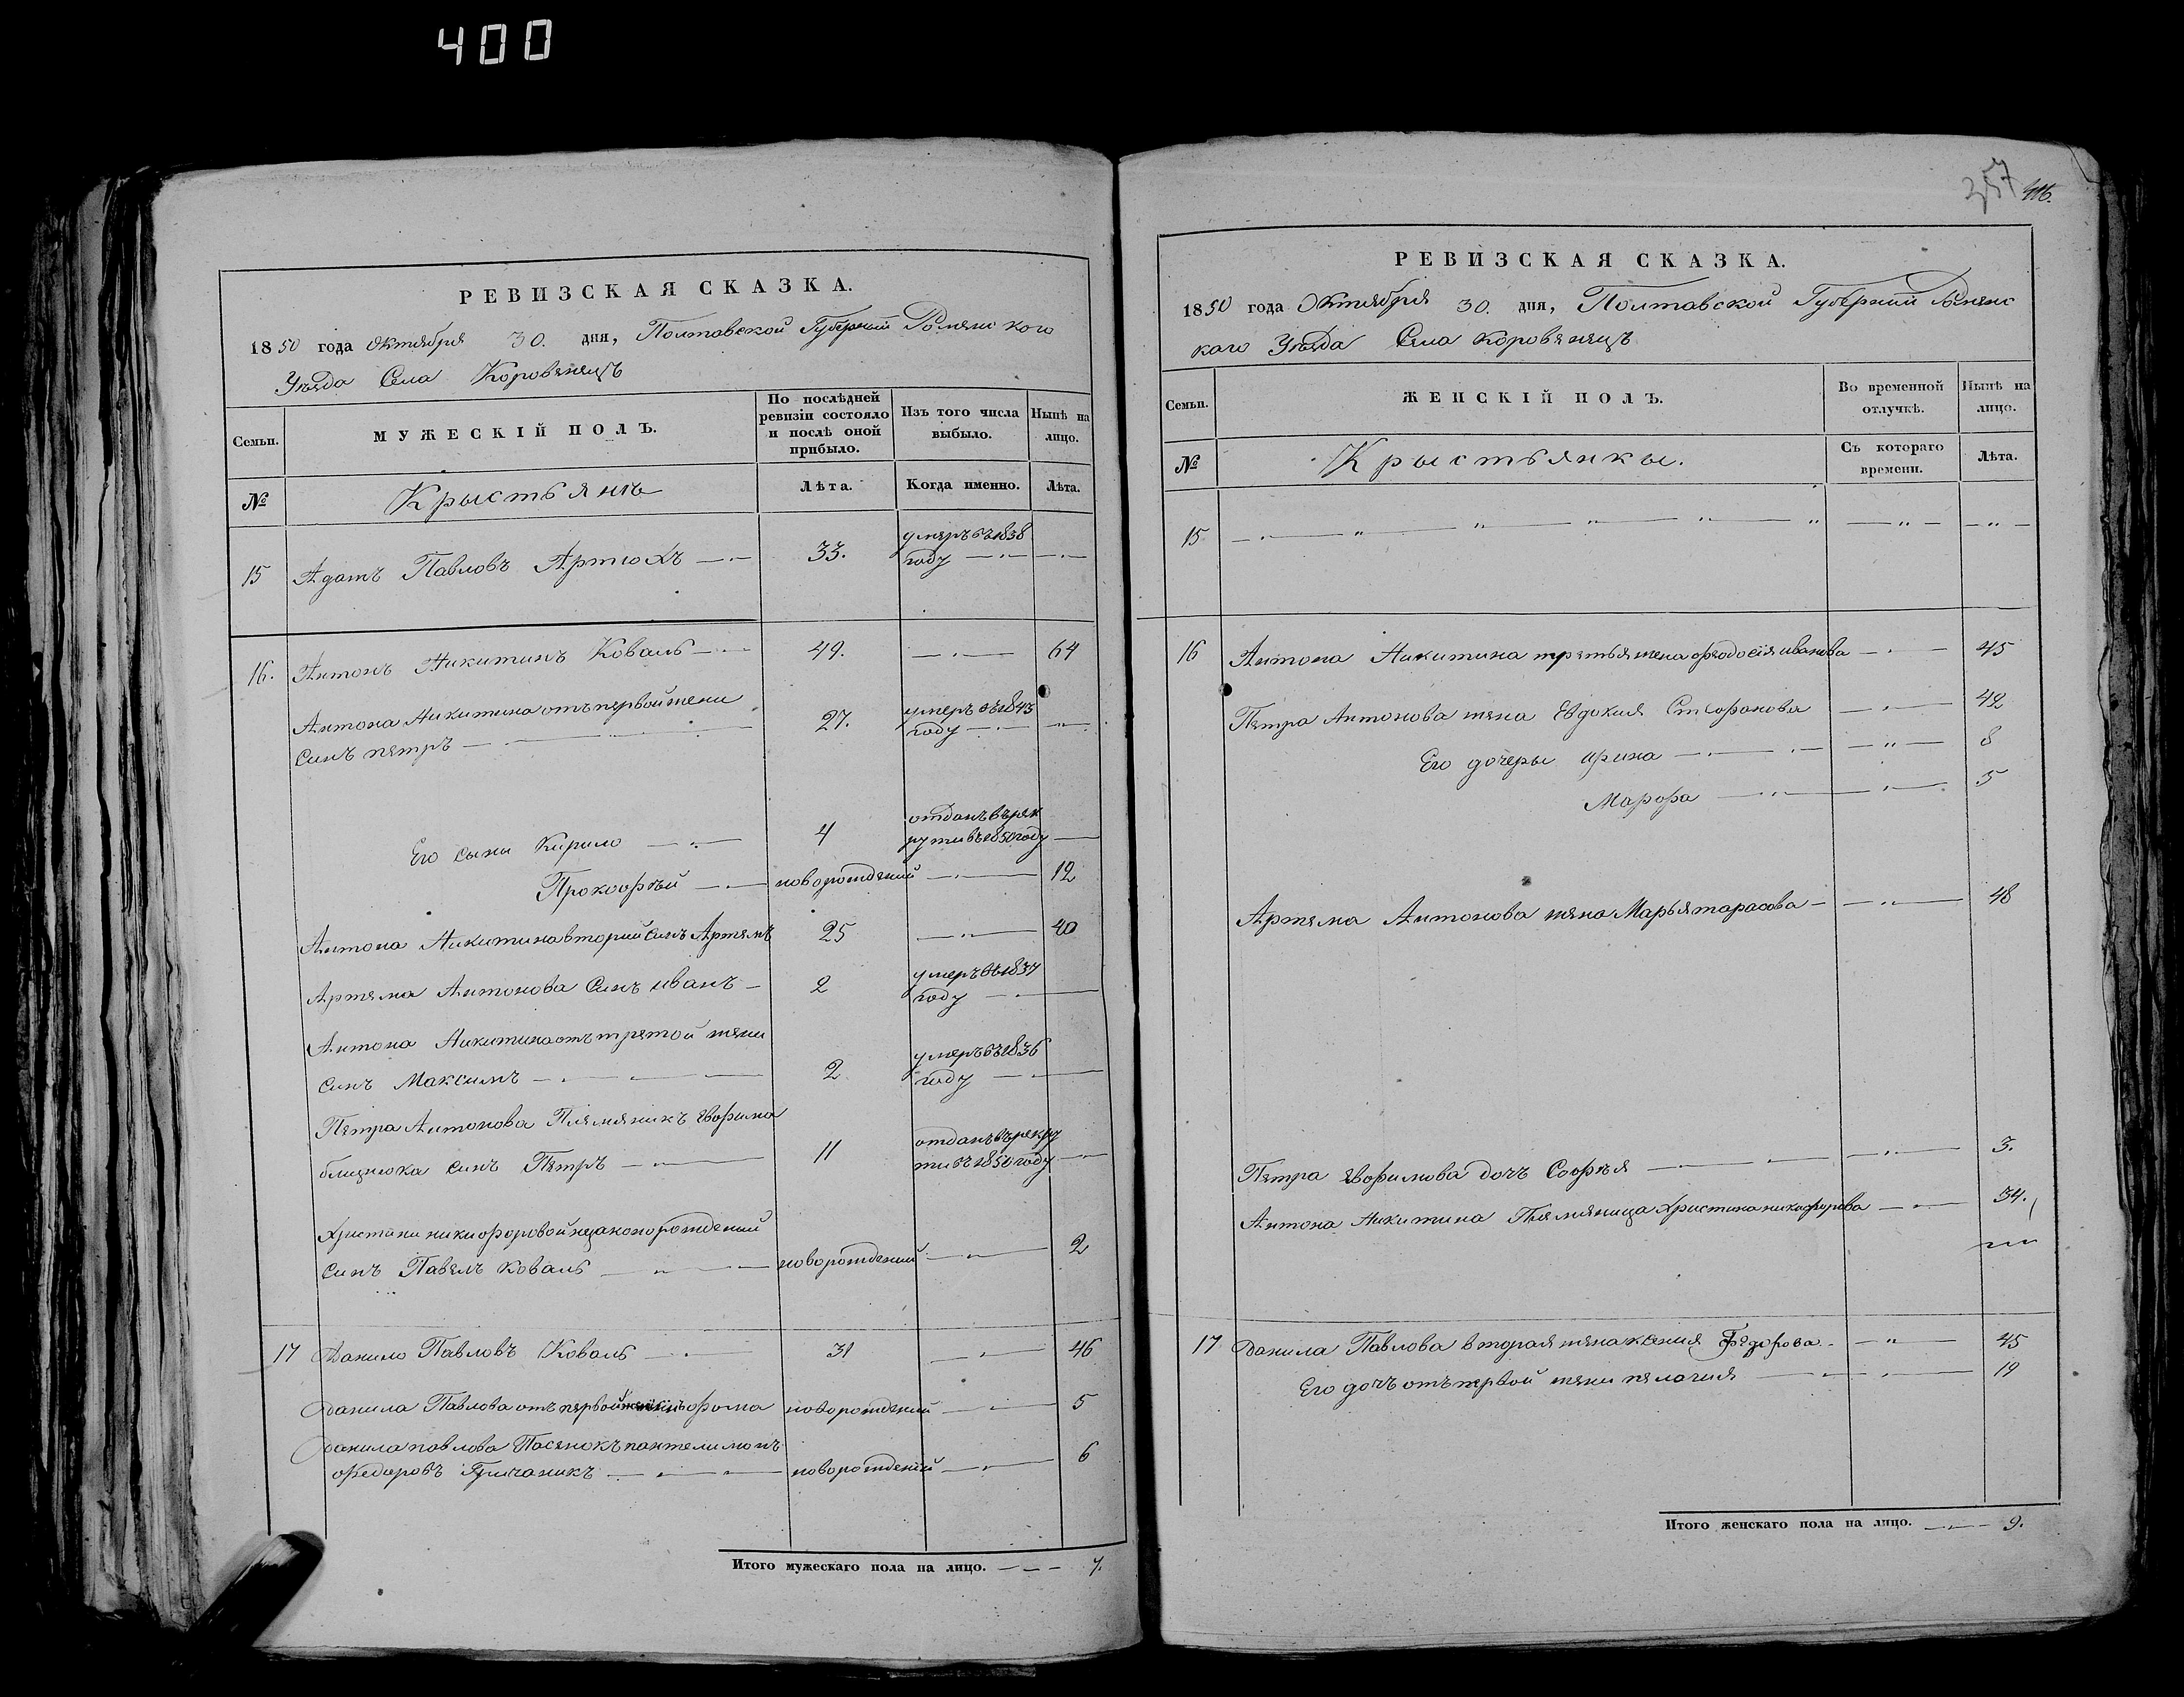 400
РЕВИЗСКАЯ СКАЗКА.
1850 года Октября 30. дня, Полтавской Губерній Роменского
Уезда Села Коровянецъ
Семьи.
МУЖЕСКІЙ ПОЛЪ.
По послѣдней ревизіи состояло и послѣ оной прибыло.
Изъ того числа выбыло.
Нынѣ на лицо.
№
Крыстьянъ
Лѣта.
Когда именно.
Лѣта.
15 Адамъ Павловъ Артюхъ 33. умеръ въ 1838 году
16. Антонъ Никитинъ Коваль 49. 64
Антона Никитина отъ первой жени
синъ петръ 27. умеръ въ 1843 году
Его сыни Кирило 4 отданъ въ рекрути въ 1850 году
Прокофѣй новорожденій 12
Антона Никитина вторий синъ Артемъ 25 40
Артема Антонова синъ иванъ 2 умеръ въ 1837 году
Антона Никитина отъ третой жени
синъ Максимъ 2 умеръ въ 1836 году
Петра Антонова Племяникъ Евфима
близнюка синъ Петръ 11 отданъ в рекрути въ 1850 году
Христини никифоровой незаконорожденій
синъ Павелъ Коваль новорожденій 2
17 Данило Павловъ Коваль 31 46
Данила Павлова отъ первой фома новорожденій 5
Данила павлова Пасенокъ пантелимонъ
Федоровъ новорожденій 6
Итого мужескаго пола на лицо. 7.
357
РЕВИЗСКАЯ СКАЗКА.
1850 года Октября 30. дня, Полтавской Губерній Роменс
каго Уезда Села Коровянецъ
Семьи.
ЖЕНСКІЙ ПОЛЪ.
Во временной отлучкѣ.
Нынѣ на лицо.
№
Крыстьянкы.
Съ котораго времени.
Лѣта.
15
16 Антона Никитина третья жена феодосія иванова 45
Петра Антонова жена Евдокия Стефанова 42
Его дочеры ирина 8
Марфа 5
Артема Антонова жена Марья тарасова 48
Петра Евфимова дочъ Софѣя 3.
Антона Никитина Племяница Христина никифорова 34.
17 Данила Павлова вторая жена ксения Федорова 45
Его дочъ отъ первой жени пелагия 19
Итого женскаго пола на лицо. 9.